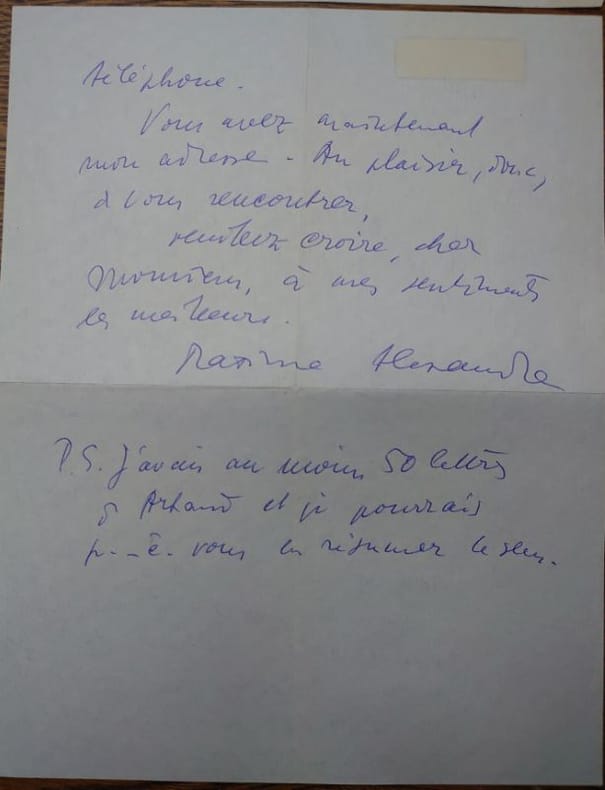 téléphone.
Vous avez maintenant
mon adresse. Au plaisir, donc,
à vous rencontrer,
veuillez croire, cher
Monsieur, à mes sentiments
les meilleurs.
Maxime Alexandre
P.S. J'avais au moins 50 lettres
d'Artaud et je pourrais
p.-ê. vous en résumer le sens.